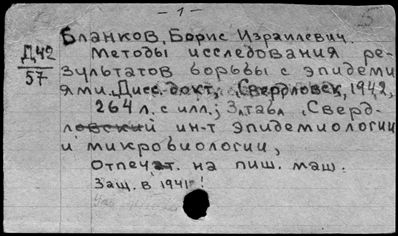 - 1 -
Бланков, Борис Израилевич.
Д42
57
Методы исследования ре-
зультатов борьбы с эпидеми
ями. Дисс. докт., Свердловск, 1942,
264 л. с илл.; 3 л. табл. Сверд-
ловский ин-т эпидемиологии
и микробиологии,
Отпечат. на пиш. маш.
Защ. в 1941 !